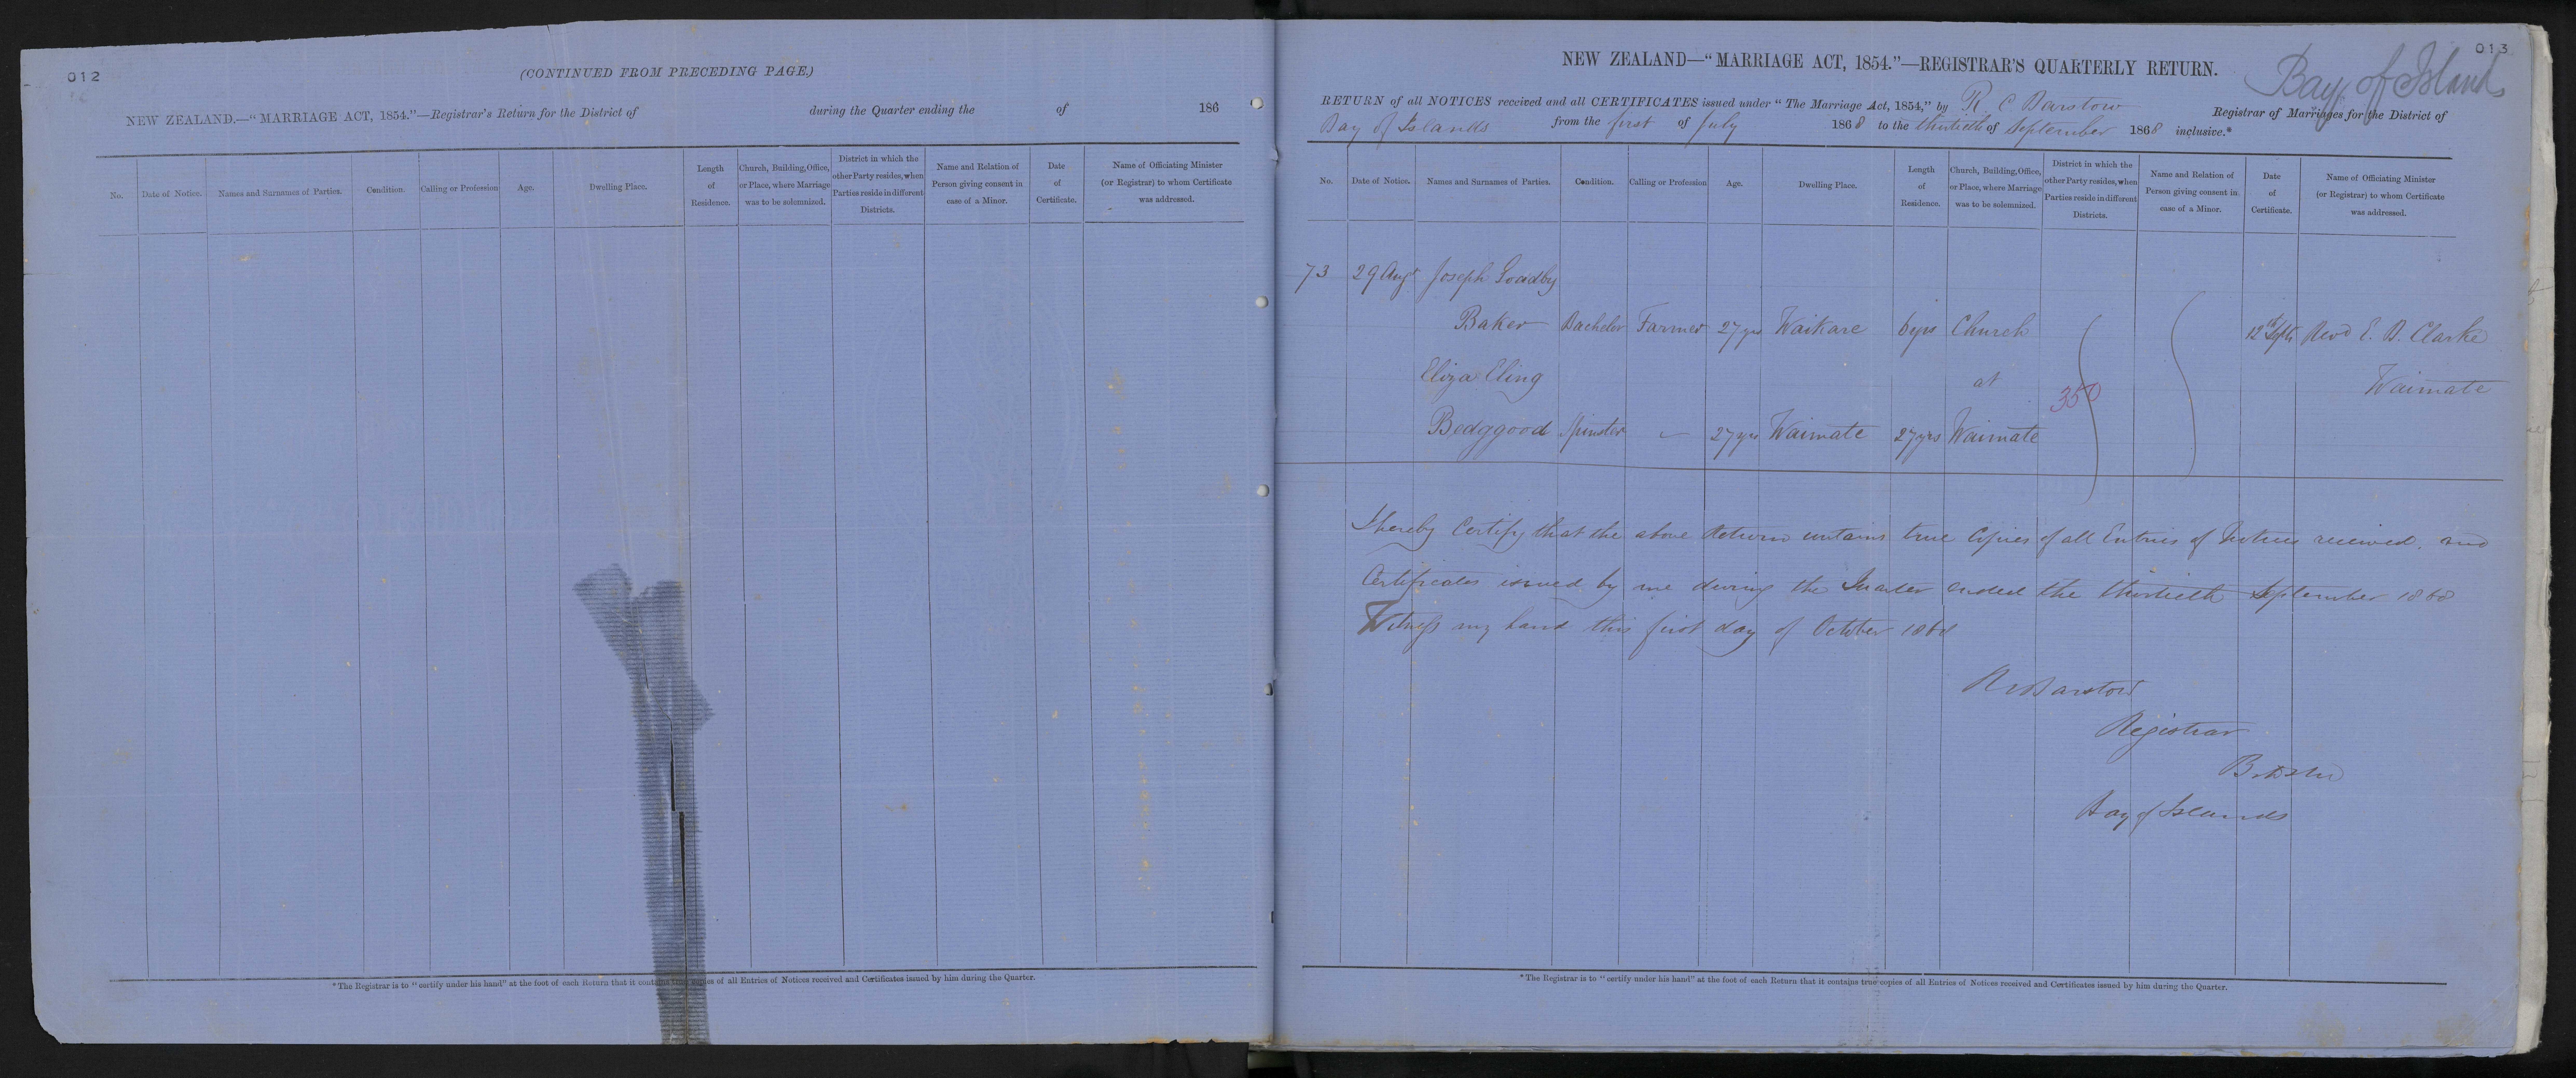 012
(CONTINUED FROM PRECEDING PAGE.)
NEW ZEALAND.—"MARRIAGE ACT, 1854."—Registrar's Return for the District of during the Quarter ending the of 186
No. Date of Notice. Names and Surnames of Parties. Condition. Calling or Profession Age. Dwelling Place. Length of Residence. Church, Building, Office, or Place, where Marriage was to be solemnized. District in which the other Party resides, when Parties reside in different Districts. Name and Relation of Person giving consent in case of a Minor. Date of Certificate. Name of Officiating Minister (or Registrar) to whom Certificate was addressed.
*The Registrar is to "certify under his hand" at the foot of each Return that it contains true copies of all Entries of Notices received and Certificates issued by him during the Quarter.
013
Bay of Islands
NEW ZEALAND—"MARRIAGE ACT, 1854."—REGISTRAR'S QUARTERLY RETURN.
RETURN of all NOTICES received and all CERTIFICATES issued under "The Marriage Act, 1854," by R. C Barstow Registrar of Marriages for the District of
Bay of Islands from the first of July 1868 to the thirtieth of September 1868 inclusive.*
No. Date of Notice. Names and Surnames of Parties. Condition. Calling or Profession Age. Dwelling Place. Length of Residence. Church, Building, Office, or Place, where Marriage was to be solemnized. District in which the other Party resides, when Parties reside in different Districts. Name and Relation of Person giving consent in case of a Minor. Date of Certificate. Name of Officiating Minister (or Registrar) to whom Certificate was addressed.
73 29 Augt Joseph
Baker Bachelor Farmer 27 yrs Waikare 6 yrs Church 12th Sept Revd E. B. Clarke
Eliza Cling at 350 Waimate
Bedggood Spinster - 27 yrs Waimate 27 yrs Waimate
I hereby Certify that the above Return contains true Copies of all Entries of Notices received, and
Certificates issued by me during the Quarter ended the thirtieth September 1868
Witness my hand this first day of October 1868
R C Barstow
Registrar
Bay of Islands
*The Registrar is to "certify under his hand" at the foot of each Return that it contains true copies of all Entries of Notices received and Certificates issued by him during the Quarter.